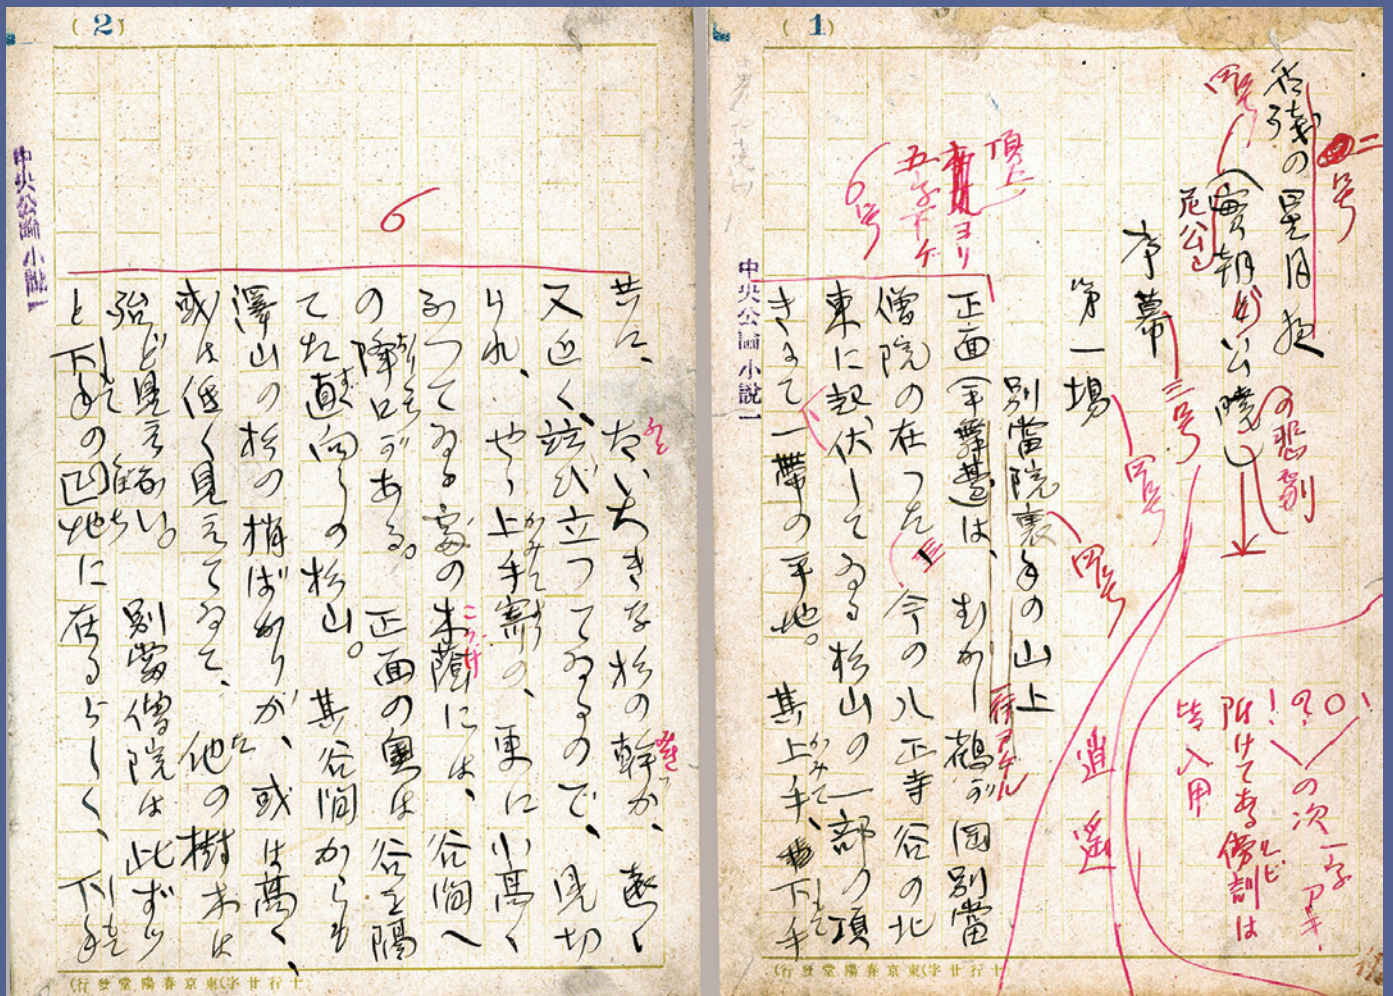 (1)
名残の星月夜
二号
(実朝と公暁)
尼公
の悲劇
四号
序幕
三号
第一場
四号
別當院裏手の山上
四号
一行アケル
逍遥
! ? 〇
の次一字アキ、
附けてある傍訓は
ルビ
皆入用
頂上
ヨリ
五字下ゲ
6号
正面(平舞臺)は、むかし鶴が岡別當
僧院の在つた今の八正寺谷の北
東に起伏してゐる杉山の一部の頂
きまで一帶の平地。其上手、下手
かみて
中央公論小説一
(十行廿字)(東京春陽堂發行)
(2)
6
共に、太い大きな杉の幹が、遠く
ふと
みき
又近く、竝び立つてゐるので、見切
られ、やゝ上手寄の、更に小高く
かみてより
なつてゐる處の木蔭には、谷間へ
こかげ
の降口がある。正面の奥は谷を隔
おりくち
てた直向うの杉山。其谷間からも
澤山の杉の梢ばかりが、或は高く、
或は低く見えてゐて、他の樹木は
た
殆ど見えない。別當僧院は此ずツ
と下手の凹地に在るらしく、下手
中央公論小説一
(十行廿字)(東京春陽堂發行)